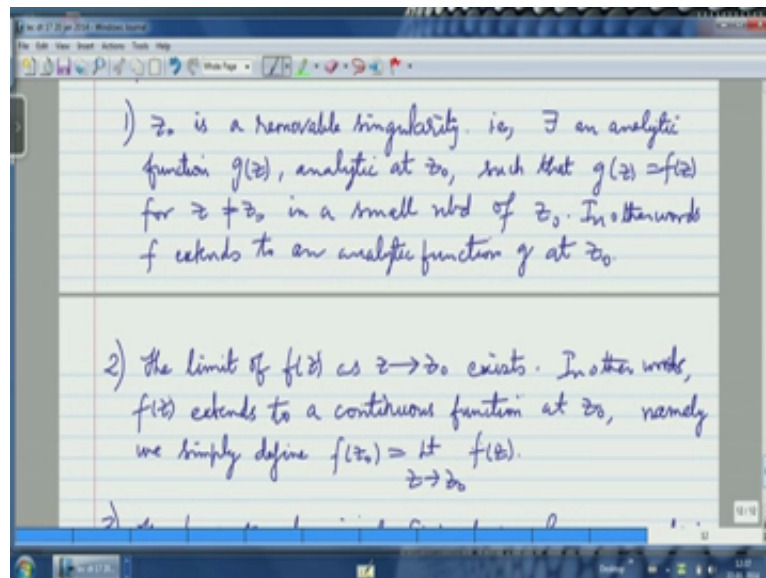 File Edit View Insert Actions Tools Help
1) z₀ is a removable singularity. ie, ∃ an analytic
function g(z), analytic at z₀, such that g(z) = f(z)
for z ≠ z₀ in a small nbd of z₀. In other words
f extends to an analytic function g at z₀.
2) The limit of f(z) as z → z₀ exists. In other words,
f(z) extends to a continuous function at z₀, namely
we simply define f(z₀) = lt f(z).
z → z₀